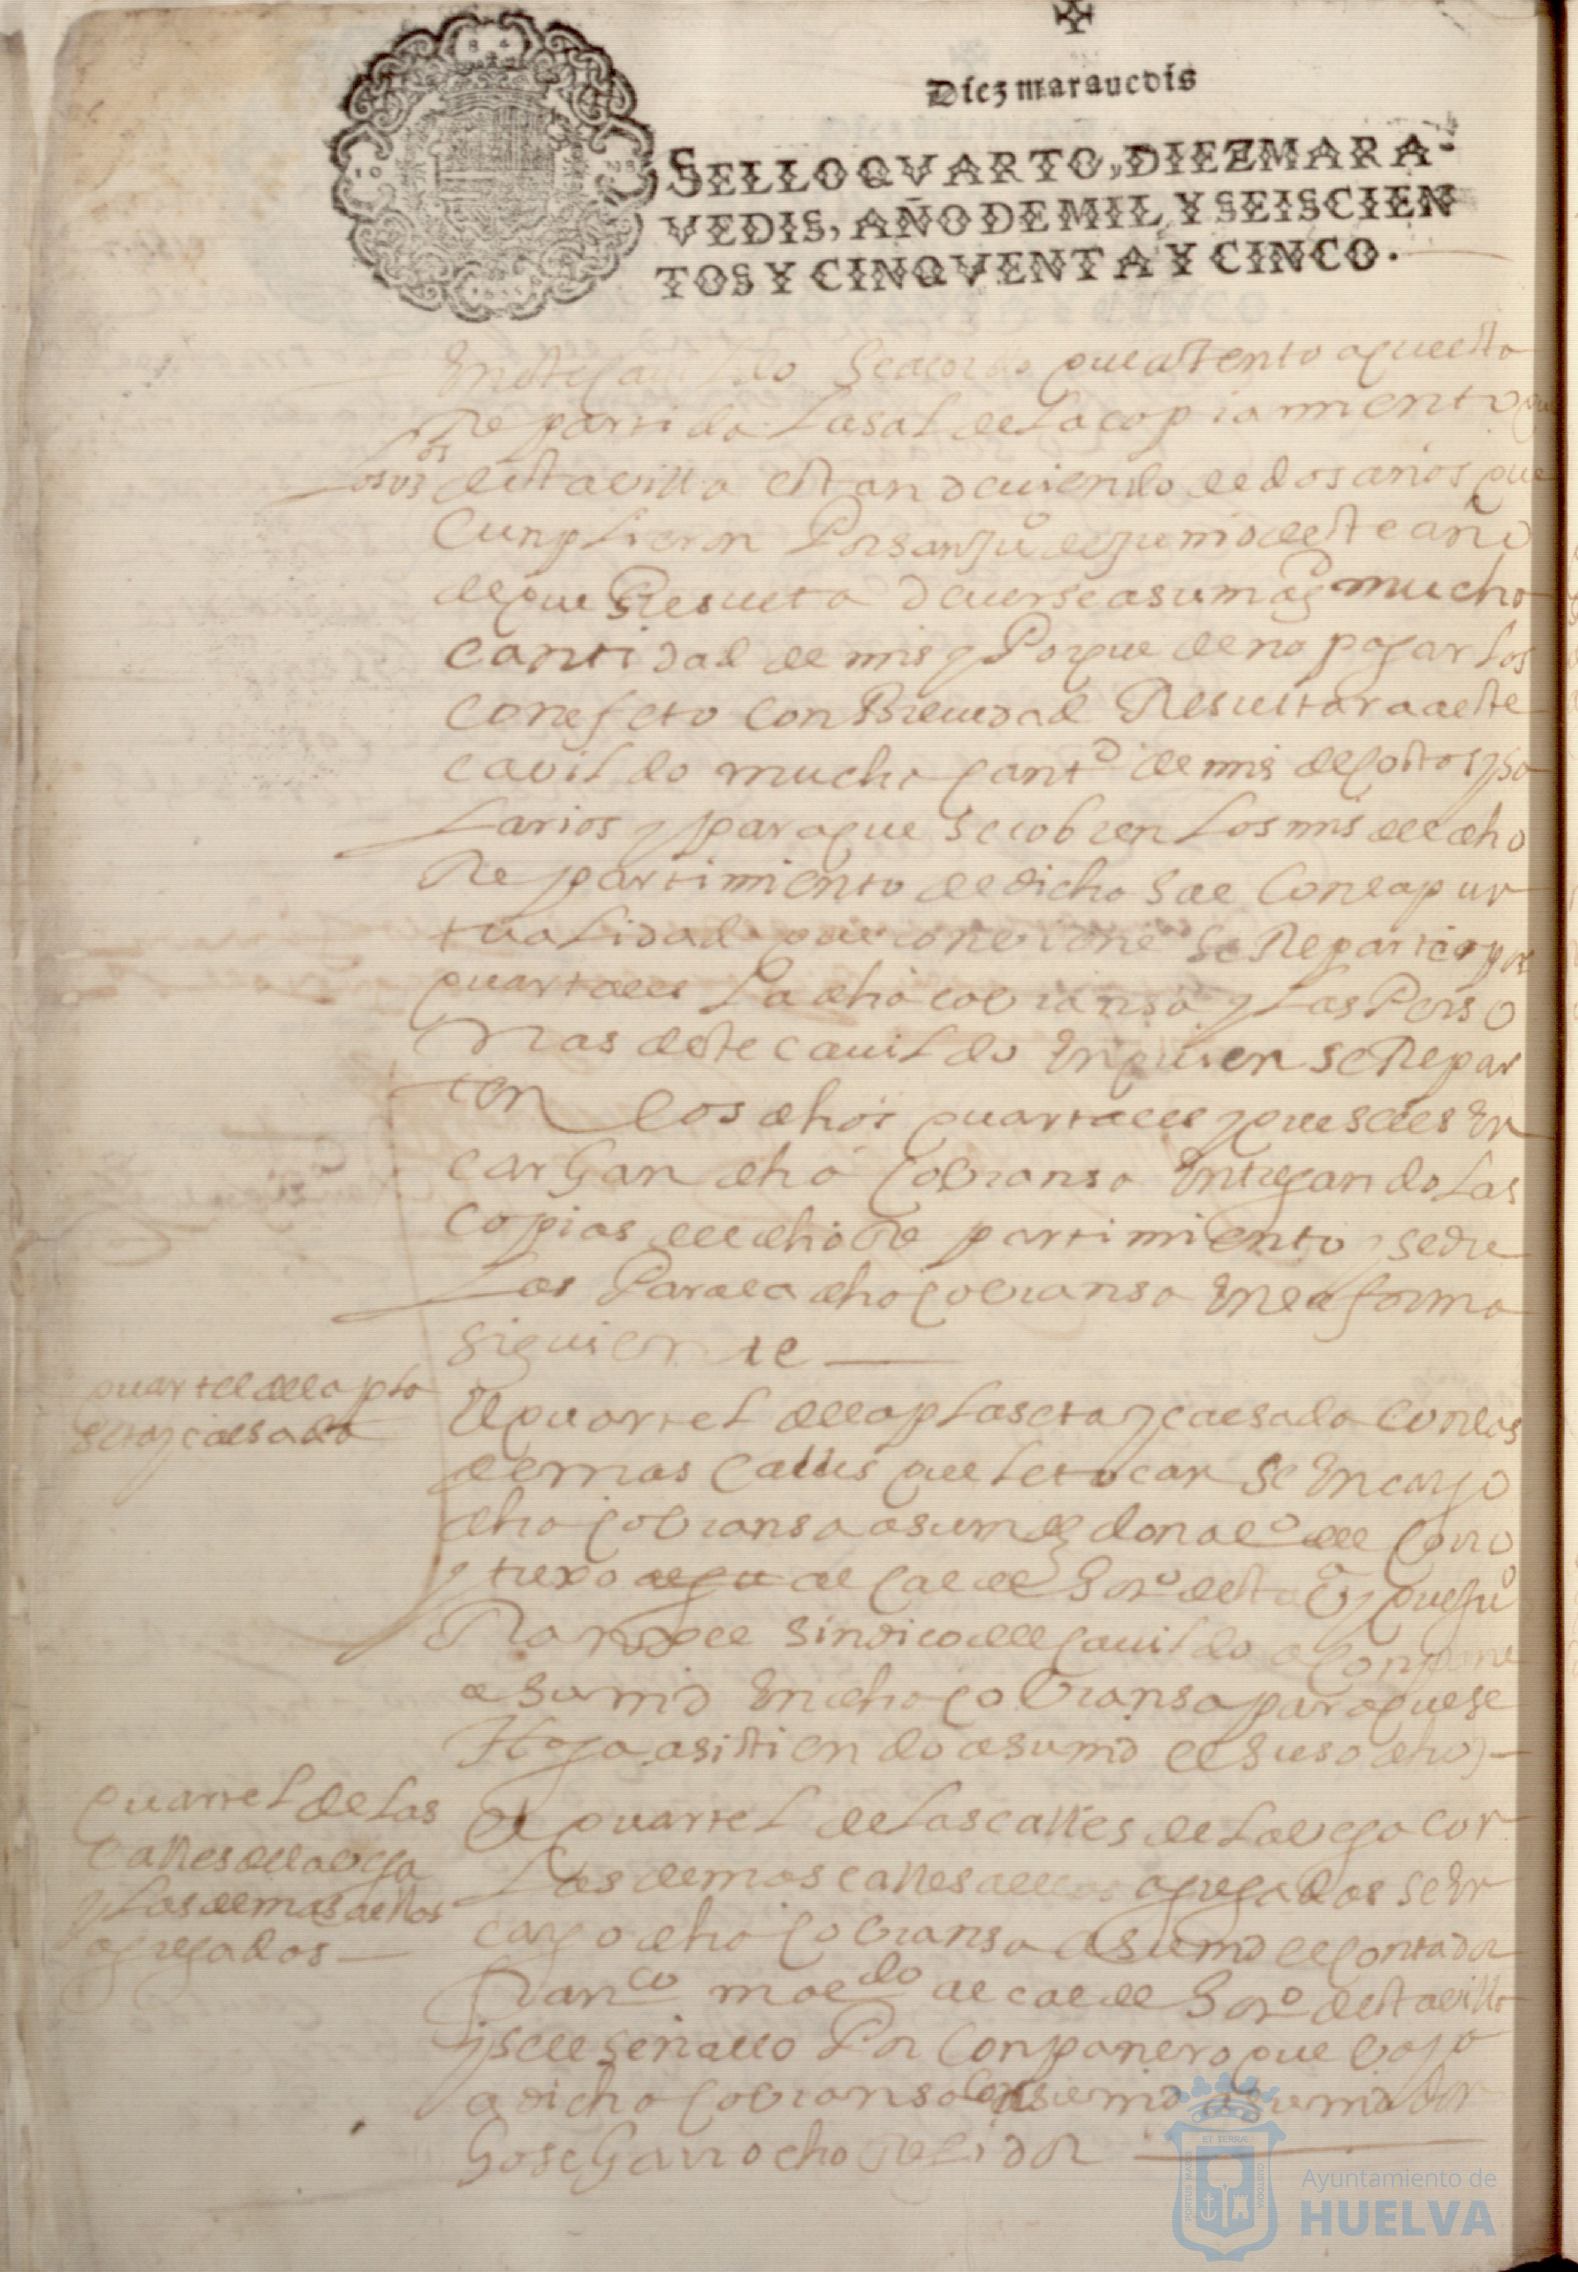 Diez maravedis
SELLO QVARTO, DIEZ MARA-
VEDIS, AÑO DE MIL Y SEISCIEN
TOS Y CINQVENTA Y CINCO.
En este cavildo se acordo que atento a que esta
Repartida la sal del acopiamiento que
los vos desta villa estan deviendo de dos años que
Cunplieron Por san Ju° de junio deste año
de que Resulta deverse a su magd mucha
cantidad de mrs y Porque de no pagarlos
con efeto con Brevedad Resultara a este
cavildo mucha cantd de mrs de costos y sa
larios y para que se cobren los mrs del dho
Repartimiento de dicha sal con la pun
tualidad que conviene se Repartio por
quarteles La dha cobransa y las Perso
nas deste cavildo En quien se Repar
ten los dhos quarteles y que se les En
cargan dha cobransa Entregandolas
copias del dho Repartimiento y sedu
las Para la dha cobransa En la forma
siguiente
quartel de la pla
seta y calsada
El quartel de la plaseta y calsada con las
demas calles que le tocan se Encargo
dha cobransa a su md don al° de
y alcalde hor° desta v y que Ju°
sindico del cavildo aconpane
a su md En dha cobransa para que se
Haga asistiendo a su md el suso dho
quartel de las
calles de la vega
y las demas a ellas
agregados
El quartel de las calles de la vega con
Las demas calles a ellas agregadas se En
cargo dha cobransa a su md el contador
Franco alcalde hor° desta villa
y se le señallo Por conpanero que vaya
a dicha cobransa con su md a su md don
Jose Garrocho Regidor
PORTUS MARIS ET TERRÆ CUSTODIA
Ayuntamiento de
HUELVA